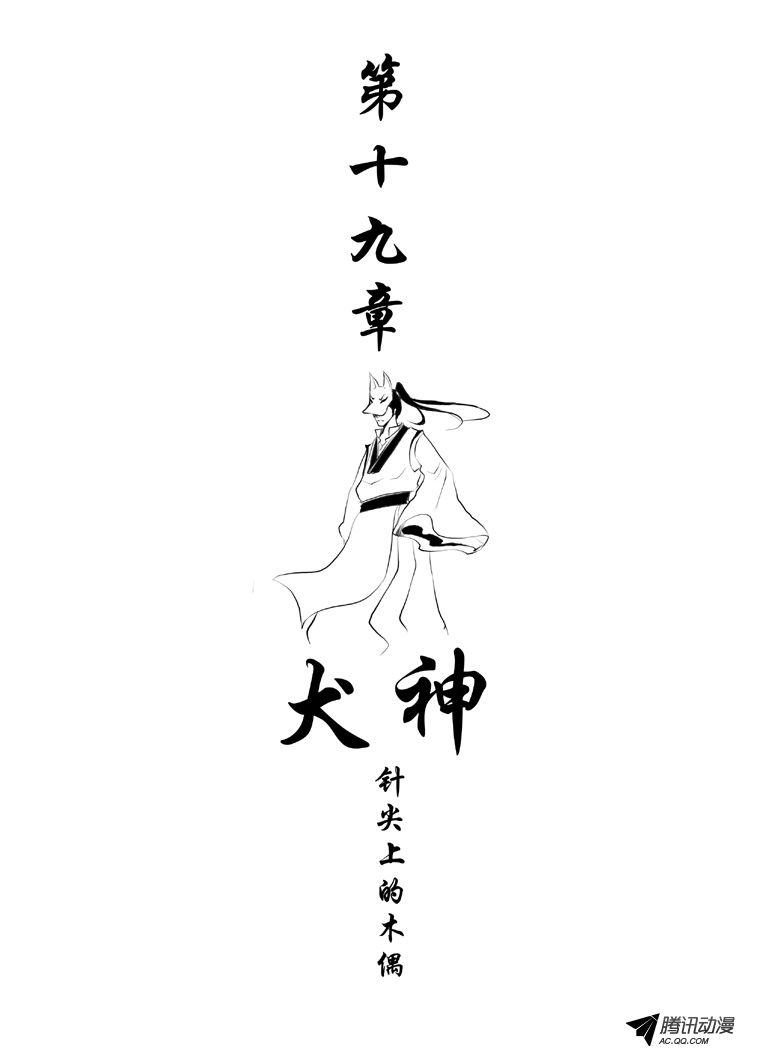 第十九章
犬神
针尖上的木偶
腾讯动漫
AC.QQ.COM